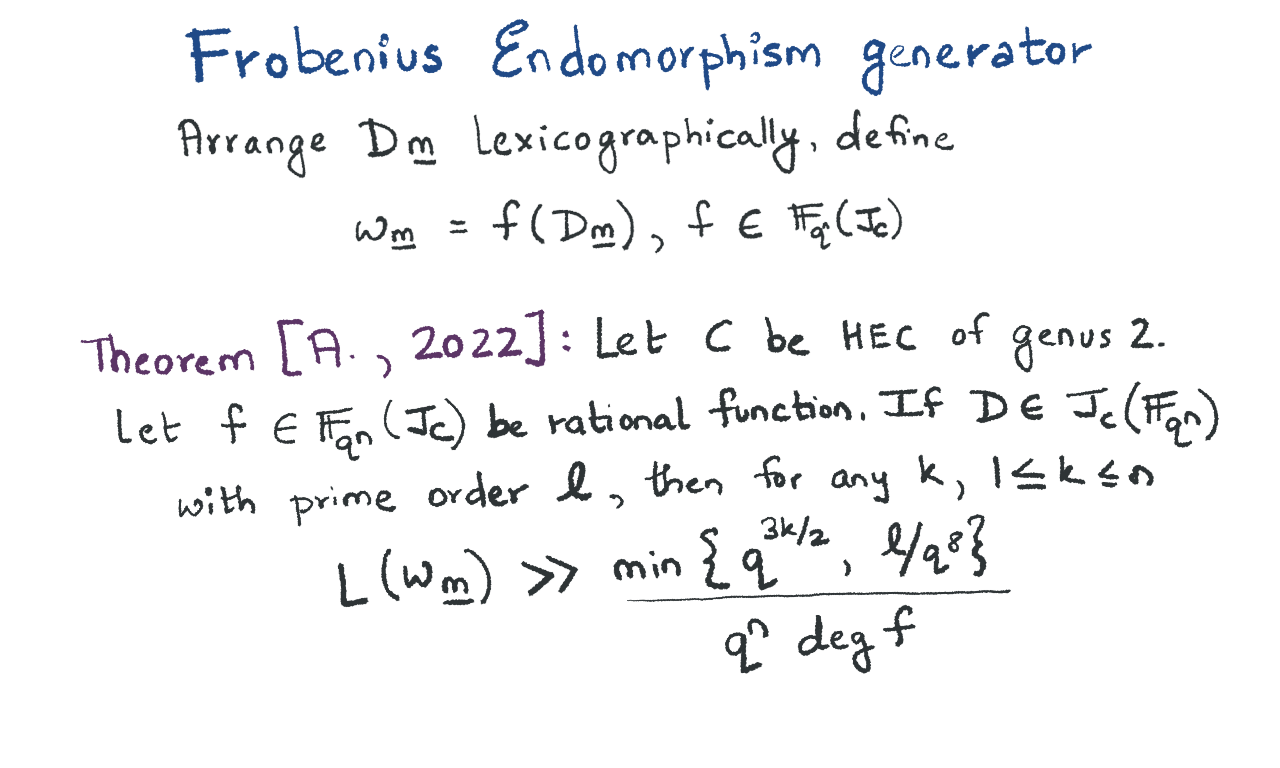 Frobenius Endomorphism generator
Arrange D_m Lexicographically, define
ω_m = f(D_m), f ∈ 𝔽_q(J_c)
Theorem [A., 2022]: Let C be HEC of genus 2.
Let f ∈ 𝔽_{qⁿ}(J_c) be rational function. If D ∈ J_c(𝔽_{qⁿ})
with prime order ℓ, then for any k, 1 ≤ k ≤ n
L(ω_m) ≫ min { q^{3k/2}, ℓ/q⁸ }
qⁿ deg f